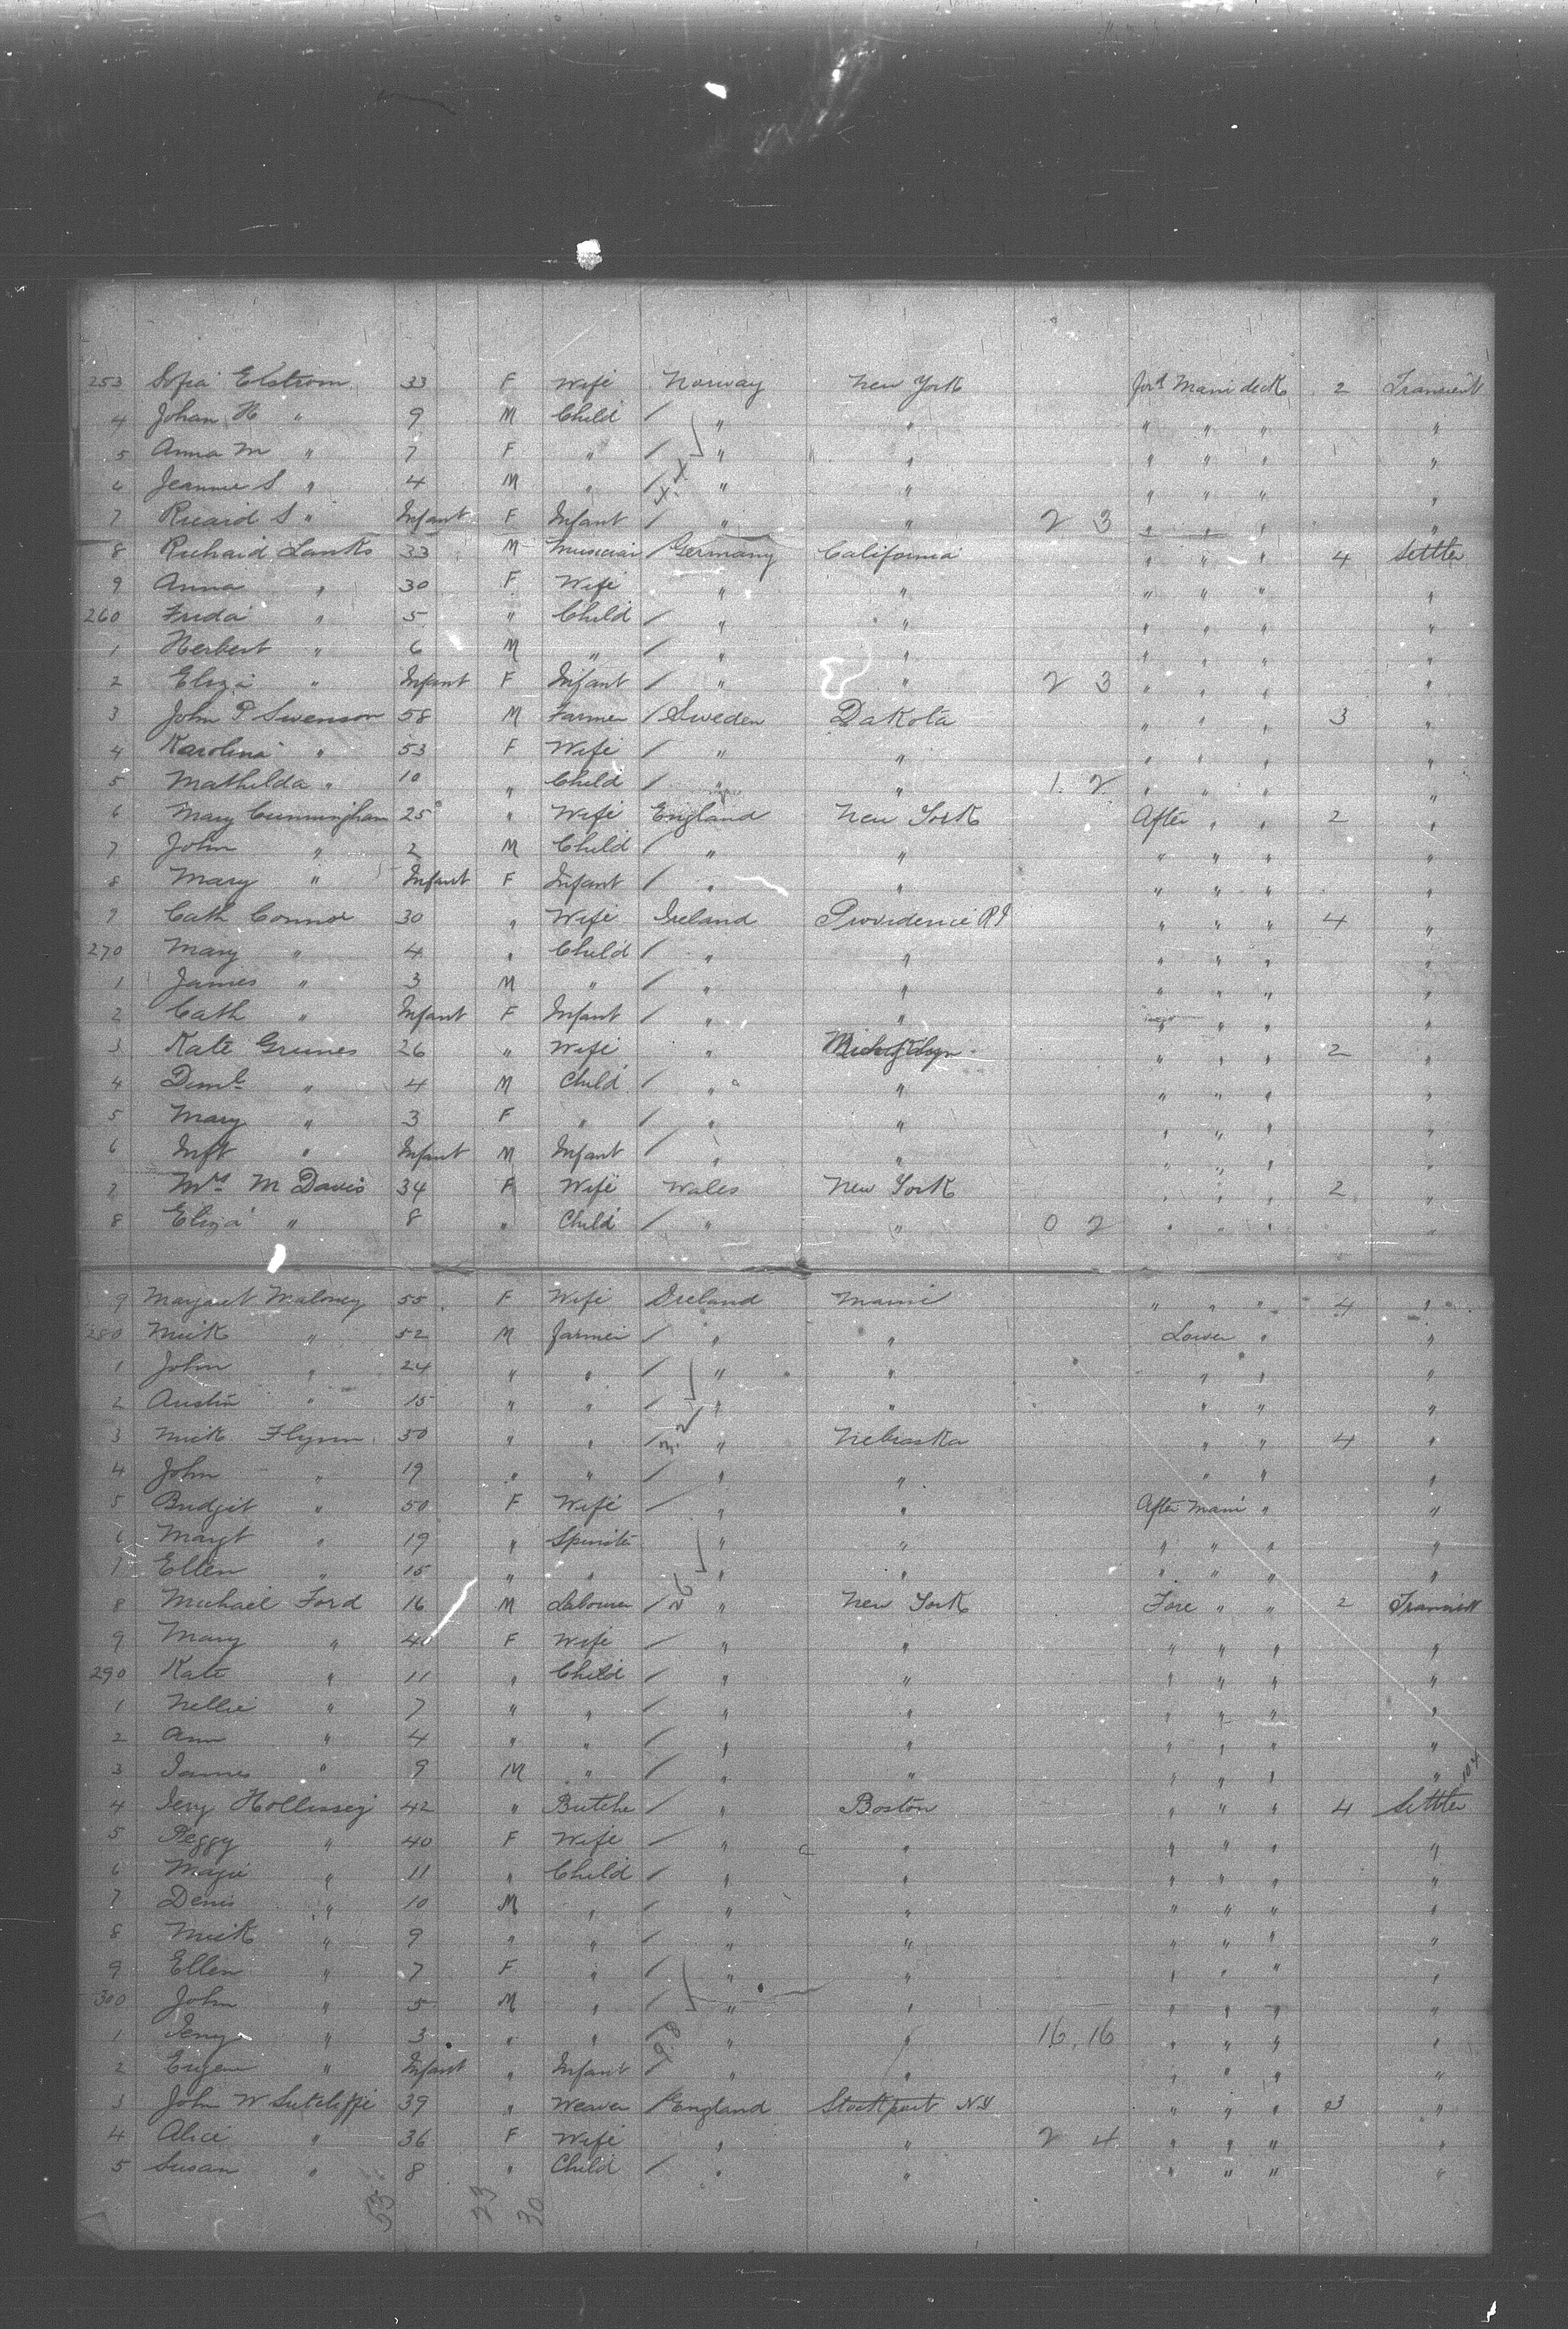 253 Sofia Elstrom 33 F Wife Norway New York For'd Main deck 2 Transient
4 Johan H " 9 M Child / " " " " " "
5 Anna M " 7 F " / " " " " " "
6 Jeannie S " 4 M " / " " " " " "
7 Ricard S " Infant F Infant / " " 2 3 " " " "
8 Richard Lanks 33 M Musician / Germany California " " " 4 Settler
9 Anna " 30 F Wife " " " " " "
260 Frida " 5 " Child / " " " " " "
1 Herbert " 6 M " / " " " " " "
2 Eliza " Infant F Infant / " " 2 3 " " " "
3 John P Swenson 58 M Farmer / Sweden Dakota " " " 3 "
4 Karolina " 53 F Wife / " " " " " "
5 Mathilda " 10 " Child / " " 1 2 " " " "
6 Mary Cunningham 25 " Wife England New York After " " 2 "
7 John " 2 M Child / " " " " " "
8 Mary " Infant F Infant / " " " " " "
9 Cath Connor 30 " Wife Ireland Providence RI " " " 4 "
270 Mary " 4 " Child / " " " " " "
1 James " 3 M " / " " " " " "
2 Cath " Infant F Infant / " " " " " "
3 Kate Grimes 26 " Wife " " " " 2 "
4 " 4 M Child / " " " " " "
5 Mary " 3 F " / " " " " " "
6 Inft " Infant M Infant / " " " " " "
7 Mrs M Davis 34 F Wife Wales New York " " " 2 "
8 Eliza " 8 " Child / " " 0 2 " " " "
9 Margaret Maloney 55 F Wife Ireland Maine " " " 4 "
280 Mick " 52 M Farmer / " " Lower " "
1 John " 24 " " / " " " " "
2 Austin " 15 " " / " " " " "
3 Mick Flynn 50 " " / " Nebraska " " 4 "
4 John " 19 " " / " " " " "
5 Bridgit " 50 F Wife / " " After Main " "
6 Margt " 19 " Spinster " " " " " "
7 Ellen " 15 " " " " " " " "
8 Michael Ford 16 M Labourer / " New York Fore " " 2 Transient
9 Mary " 40 F Wife / " " " " " "
290 Kate " 11 " Child / " " " " " "
1 Nellie " 7 " " / " " " " " "
2 Ann " 4 " " / " " " " " "
3 James " 9 M " / " " " " " "
4 Jery 42 " Butcher / " Boston " " " 4 Settler
5 Peggy " 40 F Wife / " " " " " "
6 " 11 " Child / " " " " " "
7 Denis " 10 M " / " " " " " "
8 Mick " 9 " " / " " " " " "
9 Ellen " 7 F " / " " " " " "
300 John " 5 M " / " " " " " "
1 Jerry " 3 " " / " " 16 16 " " " "
2 Eugene " Infant " Infant / " " " " " "
3 John W Sutcliffe 39 " Weaver / England Stockport NY " " " 3 "
4 Alice " 36 F Wife " " 2 4 " " " "
5 Susan " 8 " Child / " " " " " "
53 23 30